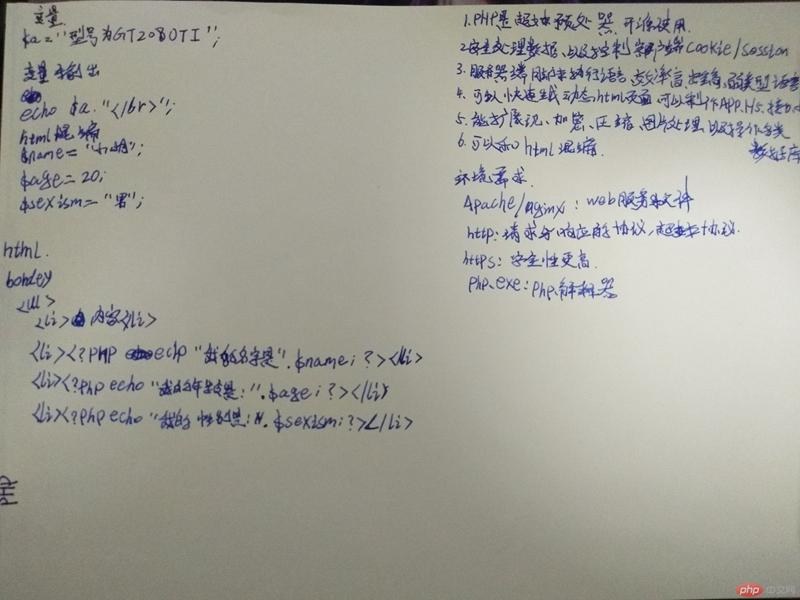 变量
$a="型号为GT2080TI";
变量 输出
echo $a."</br>";
html混编
$name="小明";
$age=20;
$sexism="男";
html.
bordey
<ul>
<li>内容<li>
<li><?PHP echo "我的名字是".$name;?></li>
<li><?php echo "我的年龄是:".$age;?></li>
<li><?php echo "我的性别是:".$sexism;?></li>
PHP
1.PHP是超文本预处理器,开源使用.
2.安全处理数据,以及控制客户端cookie/session
3.服务器端脚本执行语言,效率高,跨平台,弱类型语言
4.可以快速生成动态html页面,可以制作APP.H5.接口
5.能扩展性、加密、压缩、图片处理以及操作各类
数据库
6.可以和html混编.
环境需求.
Apache/nginx:web服务器文件
http:请求与响应的协议,超文本协议.
https:安全性更高.
php.exe:php解释器
php中文网